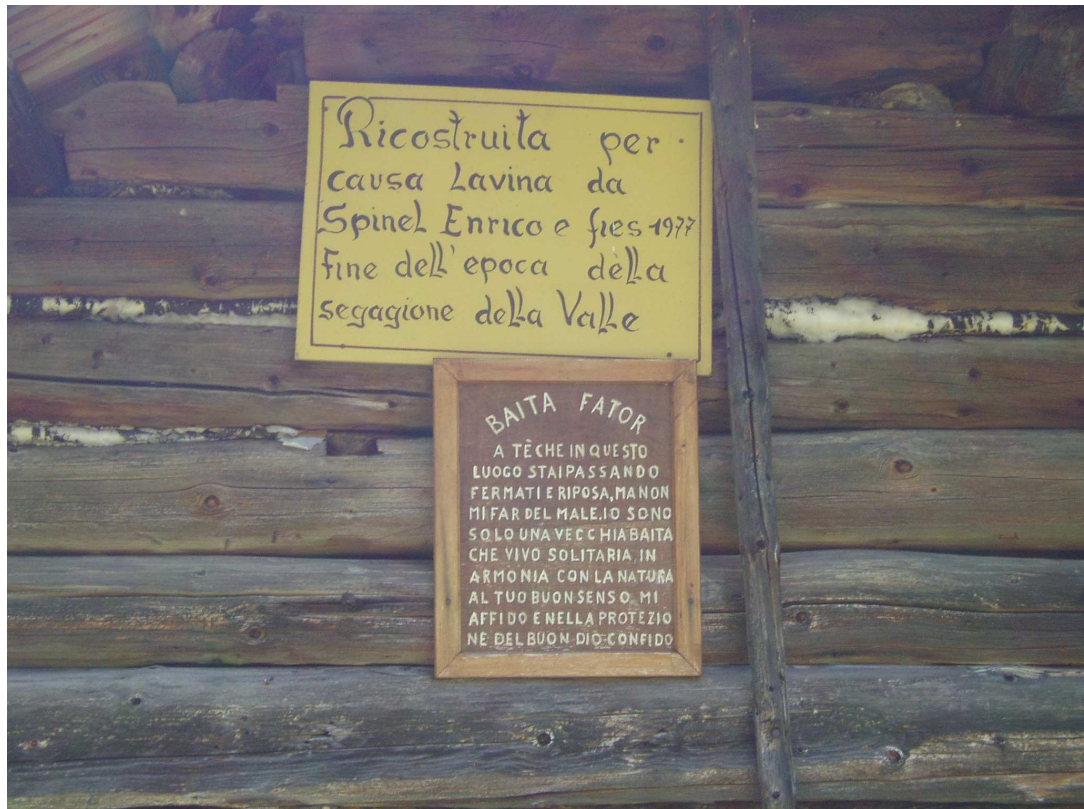 Ricostruita per
causa Lavina da
Spinel Enrico e fies 1977
fine dell'epoca della
segagione della Valle
BAITA FATOR
A TÈ CHE IN QUESTO
LUOGO STAI PASSANDO
FERMATI E RIPOSA, MA NON
MI FAR DEL MALE. IO SONO
SOLO UNA VECCHIA BAITA
CHE VIVO SOLITARIA IN
ARMONIA CON LA NATURA
AL TUO BUON SENSO MI
AFFIDO E NELLA PROTEZIO
NE DEL BUON DIO CONFIDO